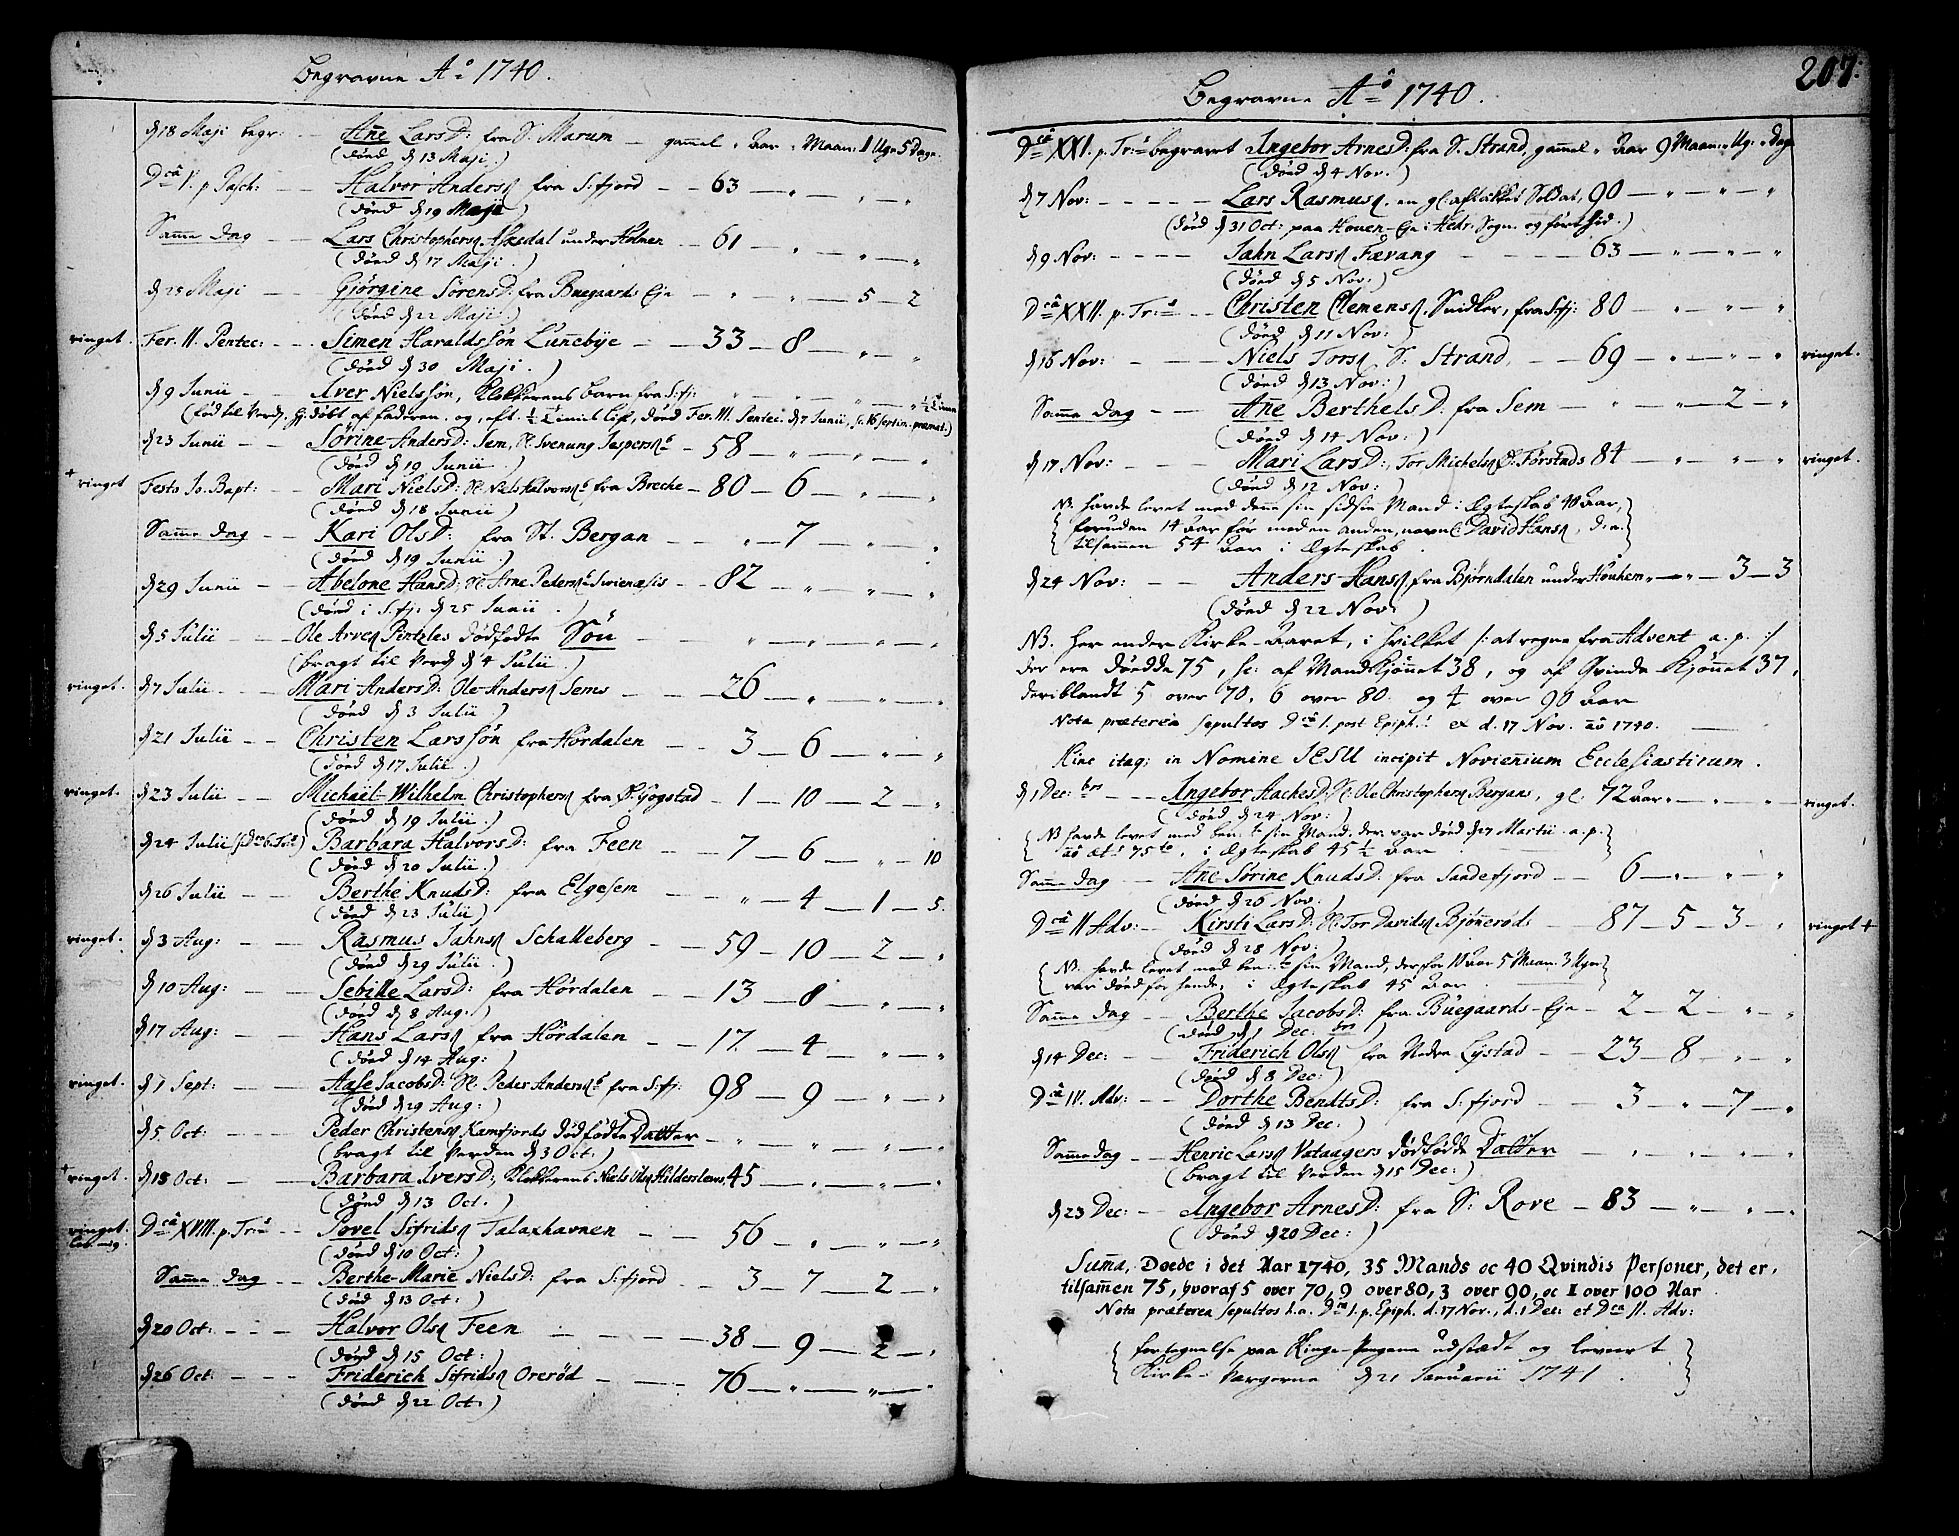 Begravne Aº 1740.
d 18 Maji begr: — Añe LarsD: fra S. Marum — gammel " Aar " Maan: 1 Uge 5 Dage.
(døed d 13 Maji.)
Dca V. p Pasch: — Halvor Anders fra S:fjord — 63 — " — " — "
(døed d 19 Maji)
Samme dag — Lars Christophers Askedal under Holmen — 61 — " — " — "
(døed d 17 Maji.)
d 25 Maji — Gjörgine SörensD: fra Buegaards Eje — " — " — 5 — 2
(døed d 22 Maji.)
ringet. Fer. II. Pentec: — Simen Haraldssön Luñebye — 33 — 8 — " — "
(døed d 30 Maji.)
d 9 Junii — Iver Nielssøn, Klokkerens barn fra S:fj: " — " — " — " ½ Time
(fød til Verd, hj:døbt af faderen, og, eft. ½ Times Lif, døed Fer. III. Pentec. d 7 Junii, sc. 16 septim. præmat.)
d 23 Junii — Sörine AndersD: Sem, Sl. Svenung Jespers — 58 — " — " — "
(døed d 19 Junii.)
+ ringet Festo Jo. Bapt: — Mari NielsD: Sl. Niels Halvors fra Breche — 80 — 6 — " — "
(døed d 18 Junii)
Samme dag — Kari OlsD: fra St. Bergan — " — 7 — " — "
(døed d 19 Junii)
d 29 Junii — Abelone HansD: Sl. Arne Peders — 82 — " — " — "
(døed i S.fj: d 25 Junii.)
d 5 Julii — Ole Arves Pentzles dødfødte Søn — " — " — " — "
(bragt til Verd d 4 Julii.)
ringet. d 7 Julii — Mari AndersD: Ole Anders Sems — 26 — " — " — "
(døed d 3 Julii)
d 21 Julii — Christen Larssön fra Hördalen — 3 — 6 — " — "
(døed d 17 Julii.)
ringet. d 23 Julii — Michaël-Wilhelm Christophers fra Ø:Gogstad — 1 — 10 — 2 — "
(døed d 19 Julii.)
d 24 Julii — Barbara HalvorsD: fra Feen — 7 — 6 — " — 10
(døed d 20 Julii.)
d 26 Julii — Berthe KnudsD: fra Elgesem — " — 4 — 1 — 5.
(døed d 23 Julii)
ringet. d 3 Aug: — Rasmus Jahns Schalleberg — 59 — 10 — 2 — "
(døed d 29 Julii.)
d 10 Aug: — Sebille LarsD: fra Hördalen — 13 — 8 — " — "
(døed d 8 Aug:)
d 17 Aug: — Hans Lars fra Hördalen — 17. — 4 — " — "
(døed d 14 Aug:)
ringet. d 1 Sept: — Aase JacobsD: Sl. Peder Anders fra S:fj: — 98 — 9 — " — "
(døed d 29 Aug:)
d 5 Oct: — Peder Christens Kamfjords dødfødte Datter — " — " — " — "
(bragt til Verden d 3 Oct:)
+ ringet. d 18 Oct: — Barbara IversD: Klokkerens Niels Ols Hilderslens, 45 — " — " — "
(døed d 13 Oct.)
ringet. Dca XVIII. p. Tr: — Povel Sifrids Talaxhavnen — 56 — " — " — "
(døed d 10 Oct:)
Samme dag — Berthe-Marie NielsD: fra S:fjord — 3 — 7 — 2 — "
(døed d 13 Oct:)
d 20 Oct: — Halvor Ols Feen — 38 — 9 — 2 — "
(døed d 15 Oct:)
d 26 Oct: — Friderich Sifrids Orerød — 76 — " — " — "
(døed d 22 Oct:)
207.
Begravne Aº 1740.
Dca XXI. p. Tr: begravet Ingebor ArnesD: fra S. Strand, gammel " Aar 9 Maan: " Ug: " Dag
(døed d 4 Nov.)
d 7 Nov: — Lars Rasmus, en gl: aftakket Soldat, 90 — " — " — "
(død d 31 Oct: paa Houen-Eje i Hedr: Sogn, og ført hid.)
d 9 Nov: — Jahn Lars Færang — 63 — " — " — "
(døed d 5 Nov:)
Dca XXII. p. Tr: — Christen Clemens, Snidker, fra S:fj: 80 — " — " — "
(døed d 11 Nov:)
d 16 Nov: — Niels Tors S: Strand — 69 — " — " — " ringet.
(døed d 13 Nov:)
Samme dag — Añe BerthelsD: fra Sem — " — " — 2 — "
(døed d 14 Nov:)
d 17 Nov: — Mari LarsD:, Tor Michels Ø:Förstads 84 — " — " — " ringet.
(døed d 12 Nov:)
NB. hafde levet med denne sin sidste Mand i Ægteskab 40 Aar,
foruden 14 Aar før med en anden, navnl: David Hans, d. e.
tilsammen 54 Aar i Ægteskab.
d 24 Nov: — Anders Hans fra Bjørndalen under Houhem " — " — 3 — 3
(døed d 22 Nov:)
NB. Her ender Kirke-Aaret, i hvilket /: at regne fra Advent a. p. :/
der ere døedde 75, sc: af MandKjönnet 38, og af Qvinde-Kjönnet 37,
deriblandt 5 over 70, 6 over 80 og 4 over 90 Aar
Nota præterea sepultos Dca I. post Epiph: ex d. 17 Nov. aõ 1740.
Hinc itaq; in Nomine JESU incipit Novienium Ecclesiasticum.
d 1 Dec: — Ingebor AackesD: Sl. Ole Christophers Bergans, gl: 72 Aar " — " — " ringet.
(døed d 24 Nov:)
(NB hafde levet med ben: sin Mand, der var død d 27 Martii a. p.
aõ æt: 75, i Ægteskab 45½ Aar.)
Samme dag — Añe Sörine KnudsD: fra Sandefjord — 6 — " — " — "
(døed d 26 Nov:)
Dca II Adv: — Kirsti LarsD: Sl. Tor Davids Bjönerøds — 87 — 5 — 3 — " ringet +
(døed d 28 Nov:)
(NB. hafde levet med ben: sin Mand, der for 11 Aar 5 Maan. 3 Uger
var død for hende, i Ægteskab 45 Aar.)
Samme dag — Berthe JacobsD: fra Buegaards-Eje — 2 — 2 — " — "
(døed d 1 Dec:)
d 14 Dec: — Friderich Ols fra Nedre Lystad — 23 — 8 — " — "
(døed d 8 Dec:)
Dca IV. Adv: — Dorthe BendtsD: fra S:fjord — 3 — " — 7 — "
(døed d 13 Dec:)
Samme dag — Henric Lars Vataagers dødfødde Datter — " — " — " — "
(bragt til Verden d 15 Dec:)
d 23 Dec: — Ingebor ArnesD: fra S: Rove — 83 — " — " — "
(døed d 20 Dec:)
Suma, Døede i det Aar 1740, 35 Mands oc 40 Qvindis Personer, det er,
tilsamen 75, hvoraf 5 over 70, 9 over 80, 3 over 90, oc 1 over 100 Aar
Nota præterea sepultos h.a. Dca I. p. Epiph. d. 17 Nov., d. 1 Dec: et Dca II. Adv:
fortegnelse paa Ringe-Pengene udstædt og leveert
Kirke-Værgerne d 21 Januarii 1741.